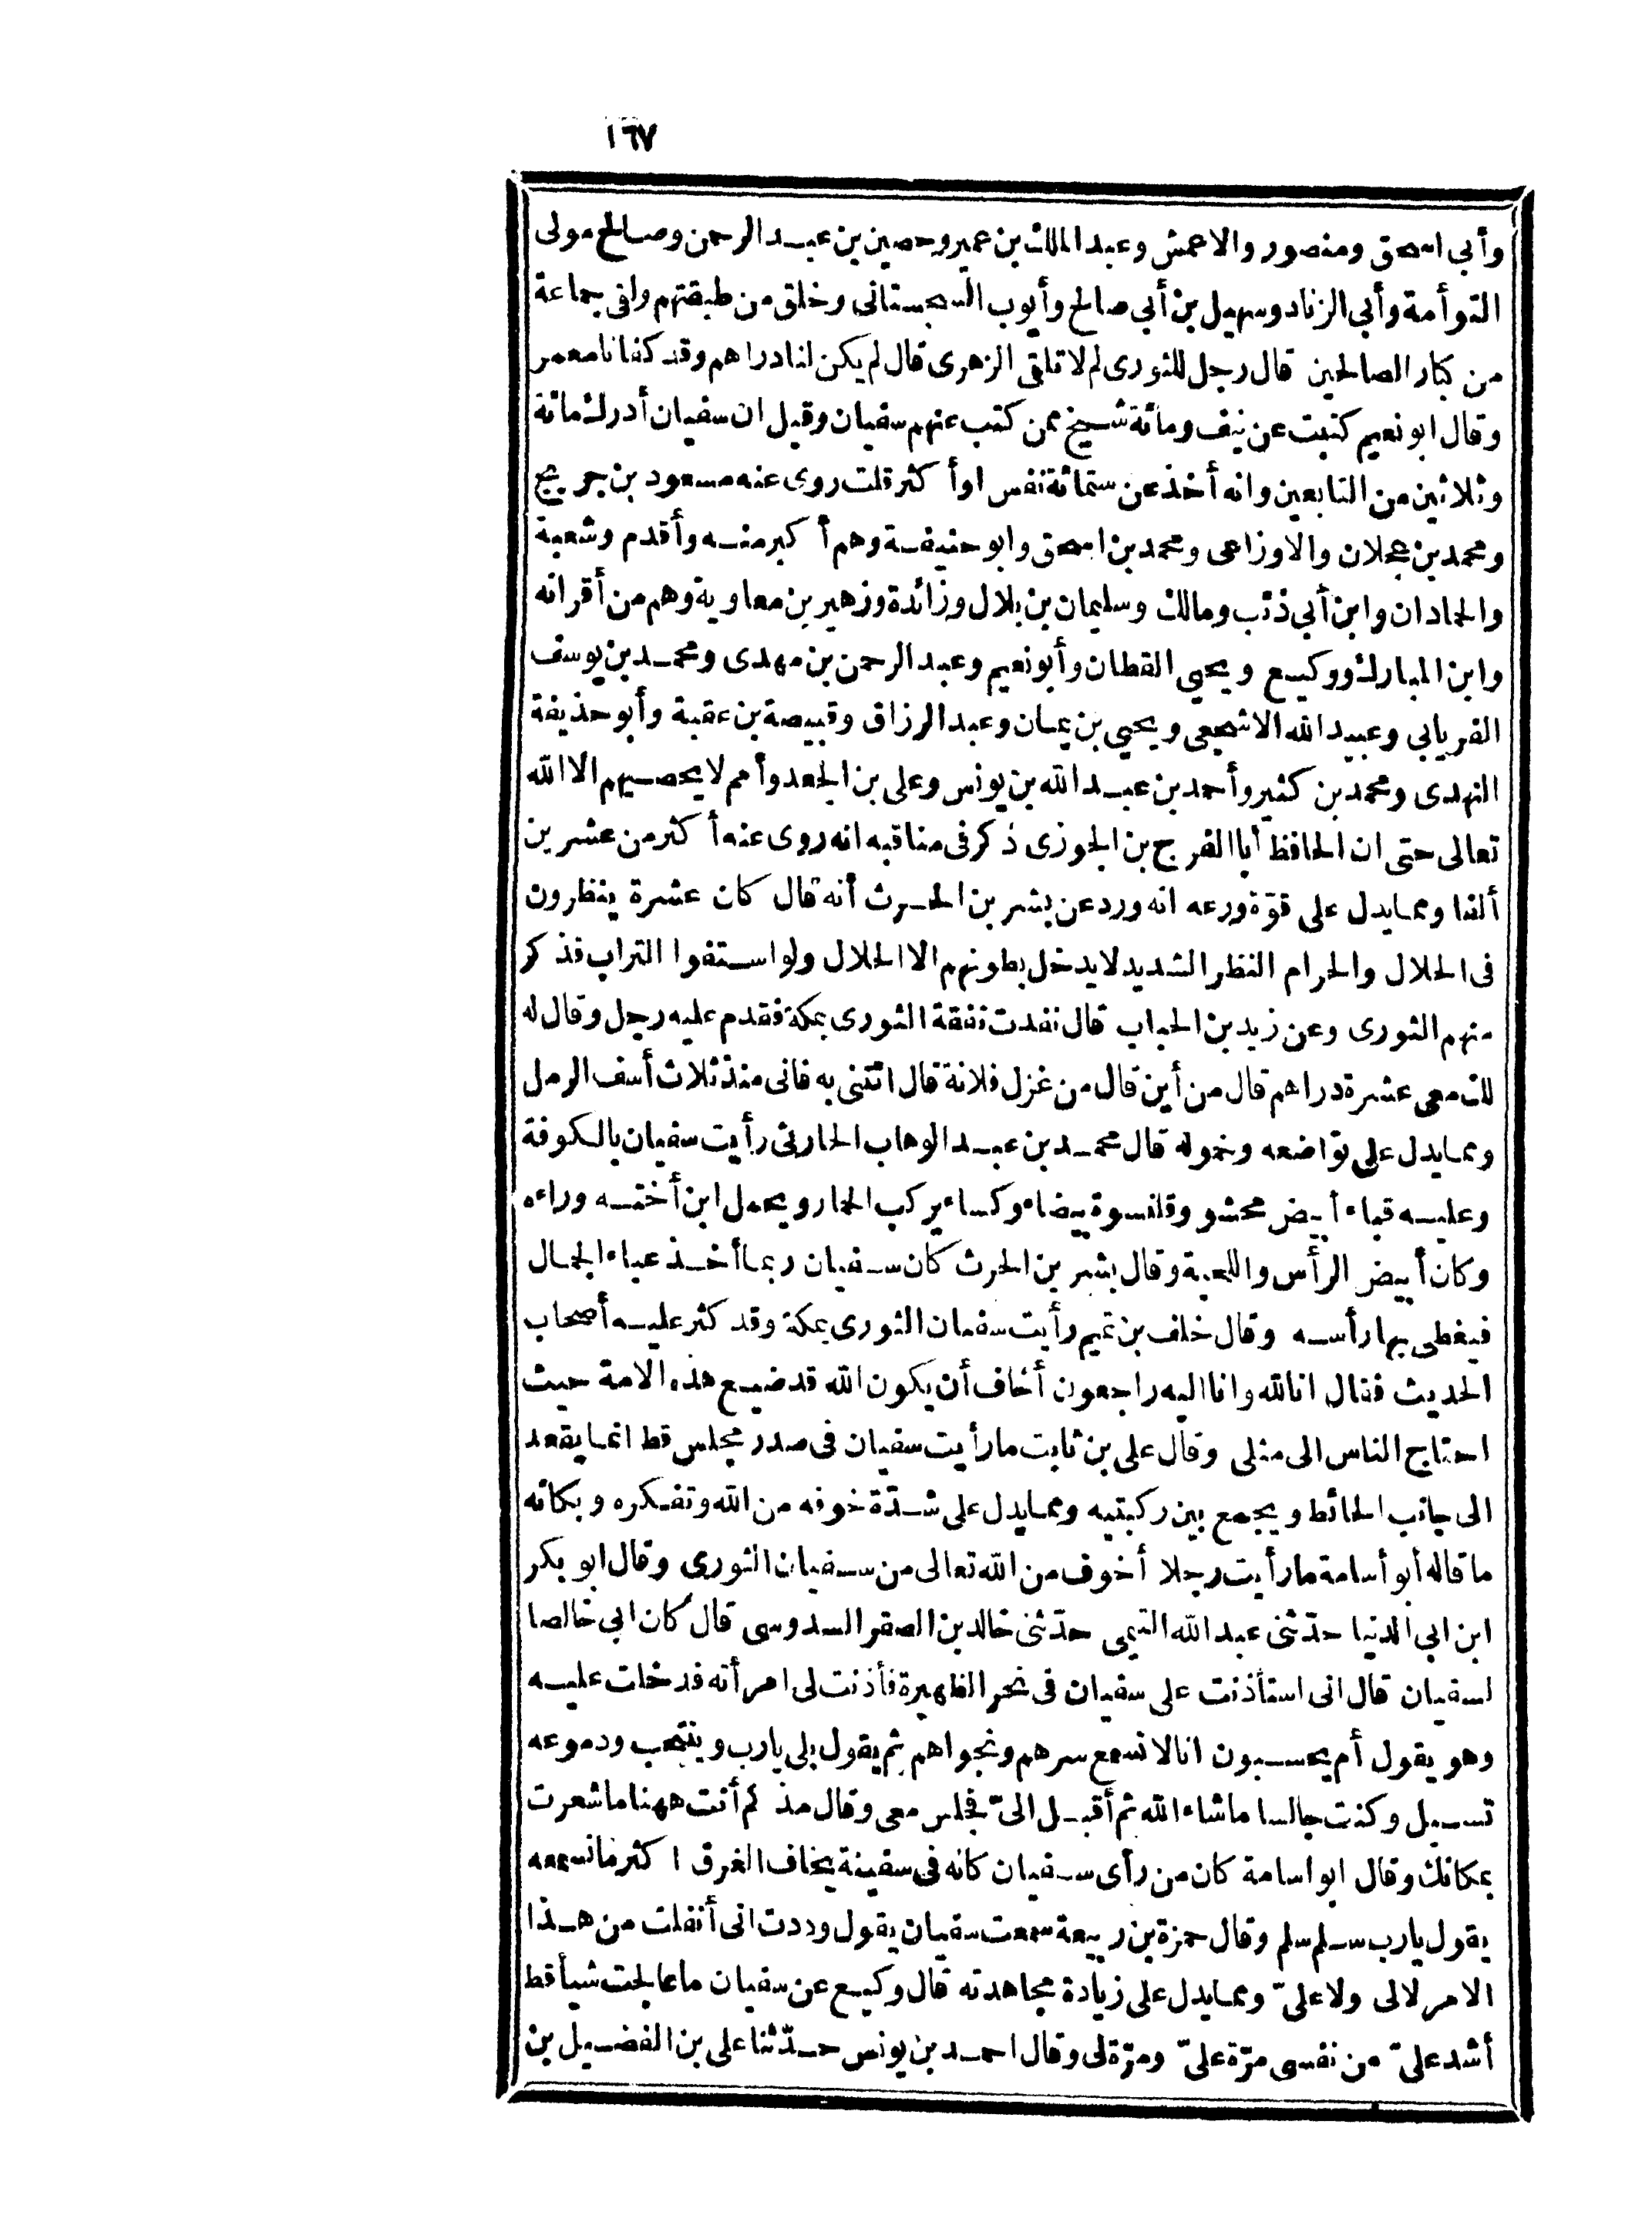 ١٦٧
وأبي اسحق ومنصور والاعمش وعبد الملك بن عمير وحصين بن عبد الرحمن وصالح مولى
التوأمة وأبي الزناد وسهيل بن أبي صالح وأيوب السجستانى وخلق من طبقتهم وافى جماعة
من كبار الصالحين قال رجل للثورى لم لا تلقى الزهرى قال لم يكن لنا دراهم وقد كفانا معمر
وقال ابو نعيم كتبت عن نيف ومائة شيخ ممن كتب عنهم سفيان وقيل ان سفيان أدرك مائة
وثلاثين من التابعين وانه أخذ عن ستمائة نفس اوأ كثر قلت روى عنه مسعود بن جريج
ومحمد بن عجلان والاوزاعى ومحمد بن اسحق وابو حنيفة وهم أ كبر منه وأقدم وشعبة
والحمادان وابن أبي ذئب ومالك وسليمان بن بلال وزائدة وزهير بن معاوية وهم من أقرانه
وابن المبارك ووكيع ويحيى القطان وأبو نعيم وعبد الرحمن بن مهدى ومحمد بن يوسف
الفريابي وعبيد الله الاشجعى ويحيى بن يمان وعبد الرزاق وقبيصة بن عقبة وأبو حذيفة
النهدى ومحمد بن كثير وأحمد بن عبد الله بن يونس وعلى بن الجعد وأمم لا يحصيهم الا الله
تعالى حتى ان الحافظ أبا الفرج بن الجوزى ذكر فى مناقبه انه روى عنه أ كثر من عشرين
ألفا ومما يدل على قوّة ورعه انه ورد عن بشر بن الحرث أنه قال كان عشرة ينظرون
فى الحلال والحرام النظر الشديد لا يدخل بطونهم الا الحلال ولو استفوا التراب فذكر
منهم الثورى وعن زيد بن الحباب قال نفدت نفقة الثورى بمكة فقدم عليه رجل وقال له
لك معى عشرة دراهم قال من أين قال من غزل فلانة قال ائتنى به فانى منذ ثلاث أسف الرمل
ومما يدل على تواضعه وخموله قال محمد بن عبد الوهاب الحارثى رأيت سفيان بالكوفة
وعليه قباء أبيض محشو وقلنسوة بيضاء وكساء يركب الحمار ويحمل ابن أخته وراءه
وكان أبيض الرأس واللحية وقال بشر بن الحرث كان سفيان ربما أخذ عباء الجمال
فيغطى بها رأسه وقال خلف بن تميم رأيت سفيان الثورى بمكة وقد كثر عليه أصحاب
الحديث فقال انا لله وانا اليه راجعون أخاف أن يكون الله قد ضيع هذه الامة حيث
احتاج الناس الى مثلى وقال على بن ثابت ما رأيت سفيان فى صدر مجلس قط انما يقعد
الى جانب الحائط ويجمع بين ركبتيه ومما يدل على شدّة خوفه من الله وتفكره وبكائه
ما قاله أبو أسامة ما رأيت رجلا أخوف من الله تعالى من سفيان الثورى وقال ابو بكر
ابن ابي الدنيا حدّثنى عبد الله التيمى حدّثنى خالد بن الصقر السدوسى قال كان ابي خالصا
لسفيان قال انى استأذنت على سفيان فى نحر الظهيرة فأذنت لى امرأته فدخلت عليه
وهو يقول أم يحسبون انا لا نسمع سرهم ونجواهم ثم يقول بلى يارب وينتحب ودموعه
تسيل وكنت جالسا ماشاء الله ثم أقبل الىّ فجلس معى وقال مذ كم أنت ههنا ما شعرت
بمكانك وقال ابو اسامة كان من رأى سفيان كانه فى سفينة يخاف الغرق ا كثر ما نسمعه
يقول يارب سلم سلم وقال حمزة بن ربيعة سمعت سفيان يقول وددت انى أنفلت من هذا
الامر لا لى ولا علىّ ومما يدل على زيادة مجاهدته قال وكيع عن سفيان ما عالجت شيأ قط
أشد علىّ من نفسى مرّة علىّ ومرّة لى وقال احمد بن يونس حدّثنا على بن الفضيل بن